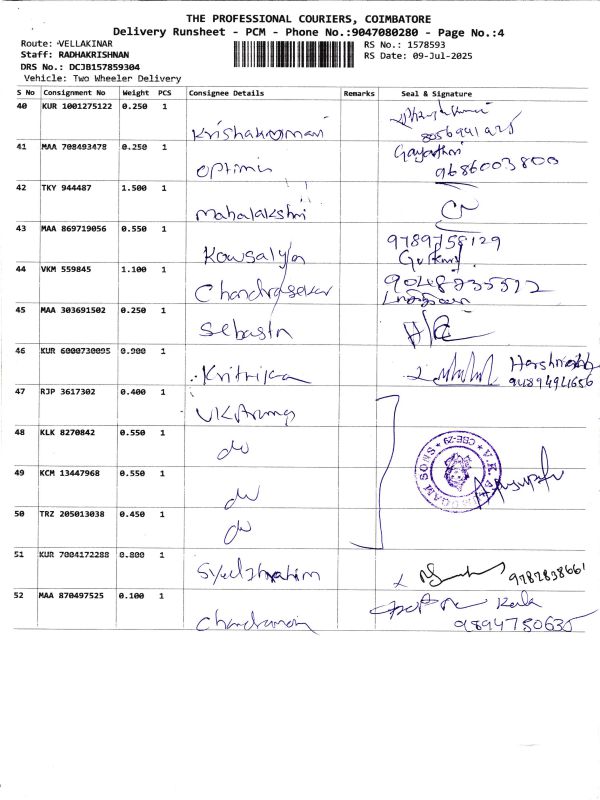 THE PROFESSIONAL COURIERS, COIMBATORE
Delivery Runsheet - PCM - Phone No.:9047080280 - Page No.:4
Route: VELLAKINAR
RS No.: 1578593
Staff: RADHAKRISHNAN
RS Date: 09-Jul-2025
DRS No.: DCJB157859304
Vehicle: Two Wheeler Delivery
S No Consignment No Weight PCS Consignee Details Remarks Seal & Signature
40 KUR 1001275122 0.250 1
Krishakumari 8056991925
41 MAA 708493478 0.250 1 Gayathri
optimis 9686003800
42 TKY 944487 1.500 1
Mahalakshmi
43 MAA 869719056 0.550 1 9789758129
Kowsalya
44 VKM 559845 1.100 1
Chandrasekar
45 MAA 303691502 0.250 1
Sebastn
46 KUR 6000730095 0.900 1
Kritrika
47 RJP 3617302 0.400 1
VKArumg
48 KLK 8270842 0.550 1
do
49 KCM 13447968 0.550 1
do
50 TRZ 205013038 0.450 1
do
51 KUR 7004172288 0.800 1
Syed Ibrahim 9787838661
52 MAA 870497525 0.100 1
Chandramani 9894750635